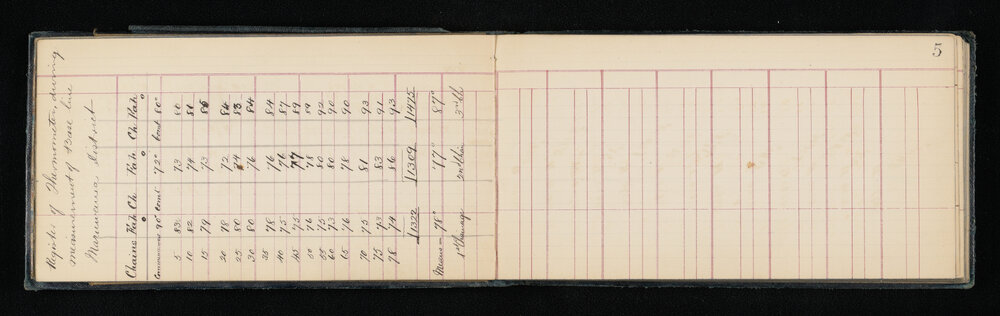 Register of Thermometer, during
measurement of Base line
Maruwauia District
Chains Fah Ch Fah Ch Fah
Commence 90° Cont 72° Cont 80°
5 83 73 80
10 82 74 81
15 79 73 86
20 78 72 84
25 80 84 83
30 80 76 84
35 78 76 84
40 75 77 87
45 75 77 89
50 76 78 89
55 75 80 92
60 73 80 90
65 76 78 90
70 75 81 93
75 73 83 91
78 74 86 93
1322 1309 1475
Means = 78° 77° 87°
1st Chainage 2nd Chain 3rd
5